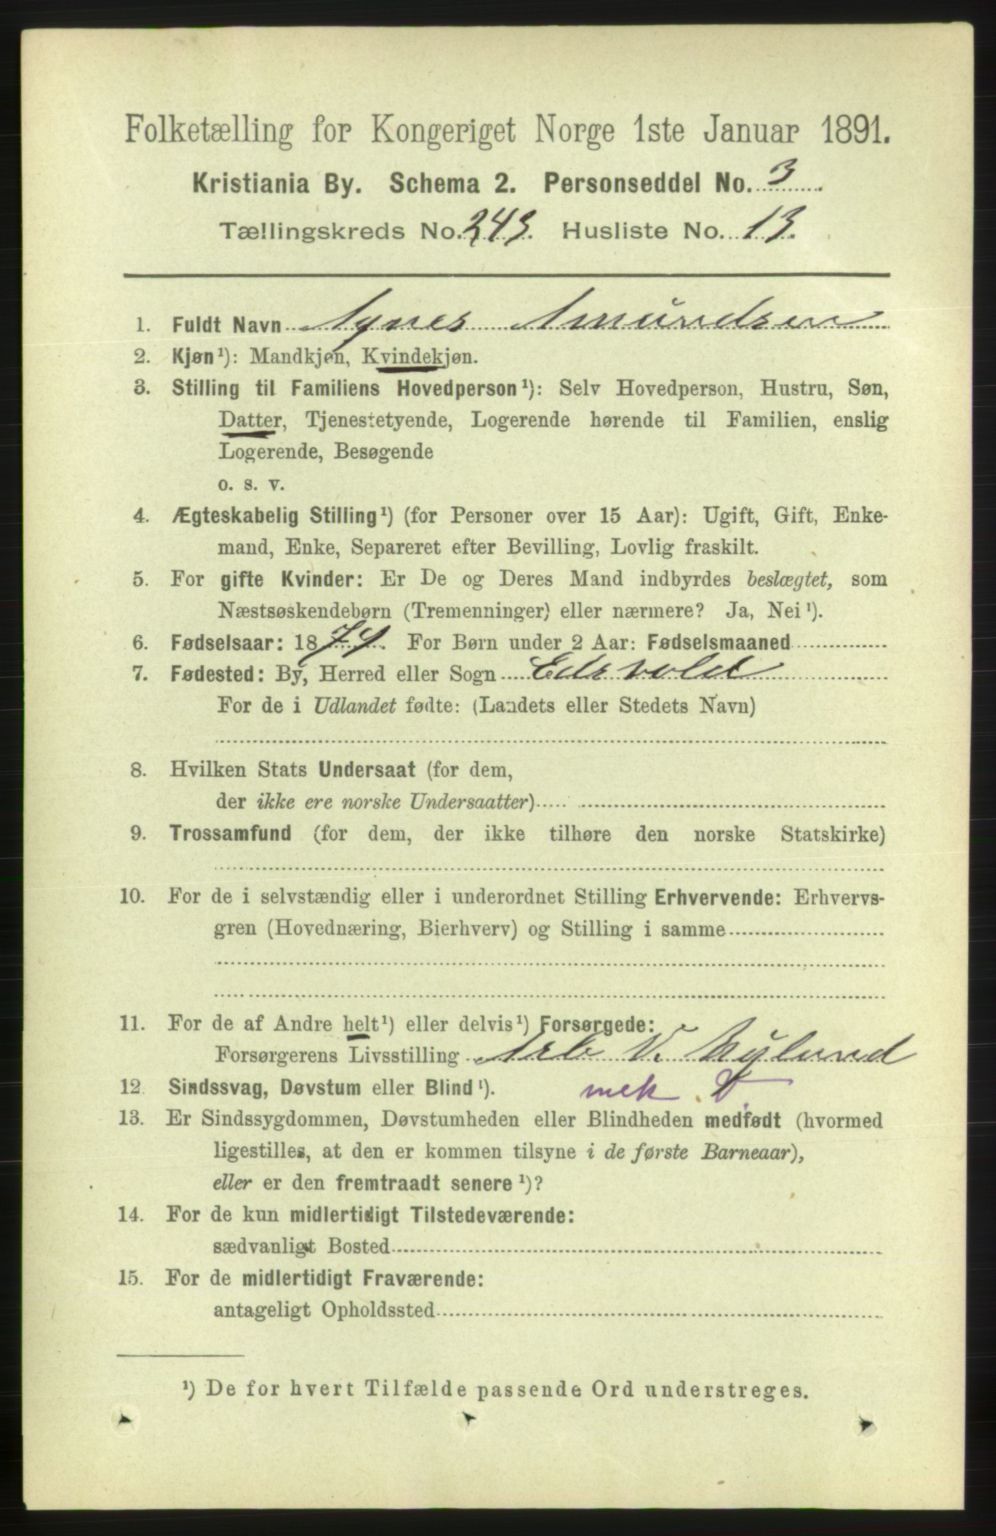 Folketælling for Kongeriget Norge 1ste Januar 1891.
Kristiania By. Schema 2. Personseddel No. 3.
Tællingskreds No. 243. Husliste No. 13.
1. Fuldt Navn Agnes Amundsen
2. Kjøn¹): Mandkjøn, Kvindekjøn.
3. Stilling til Familiens Hovedperson¹): Selv Hovedperson, Hustru, Søn,
Datter, Tjenestetyende, Logerende hørende til Familien, enslig
Logerende, Besøgende
o. s. v.
4. Ægteskabelig Stilling¹) (for Personer over 15 Aar): Ugift, Gift, Enke-
mand, Enke, Separeret efter Bevilling, Lovlig fraskilt.
5. For gifte Kvinder: Er De og Deres Mand indbyrdes beslægtet, som
Næstsøskendebørn (Tremenninger) eller nærmere? Ja, Nei¹).
6. Fødselsaar: 1877. For Børn under 2 Aar: Fødselsmaaned
7. Fødested: By, Herred eller Sogn Edsvold
For de i Udlandet fødte: (Landets eller Stedets Navn)
8. Hvilken Stats Undersaat (for dem,
der ikke ere norske Undersaatter)
9. Trossamfund (for dem, der ikke tilhøre den norske Statskirke)
10. For de i selvstændig eller i underordnet Stilling Erhvervende: Erhvervs-
gren (Hovednæring, Bierhverv) og Stilling i samme
11. For de af Andre helt¹) eller delvis¹) Forsørgede:
Forsørgerens Livsstilling Arb V. Nylund
12 Sindssvag, Døvstum eller Blind¹). mek
13. Er Sindssygdommen, Døvstumheden eller Blindheden medfødt (hvormed
ligestilles, at den er kommen tilsyne i de første Barneaar),
eller er den fremtraadt senere¹)?
14. For de kun midlertidigt Tilstedeværende:
sædvanligt Bosted
15. For de midlertidigt Fraværende:
antageligt Opholdssted
¹) De for hvert Tilfælde passende Ord understreges.